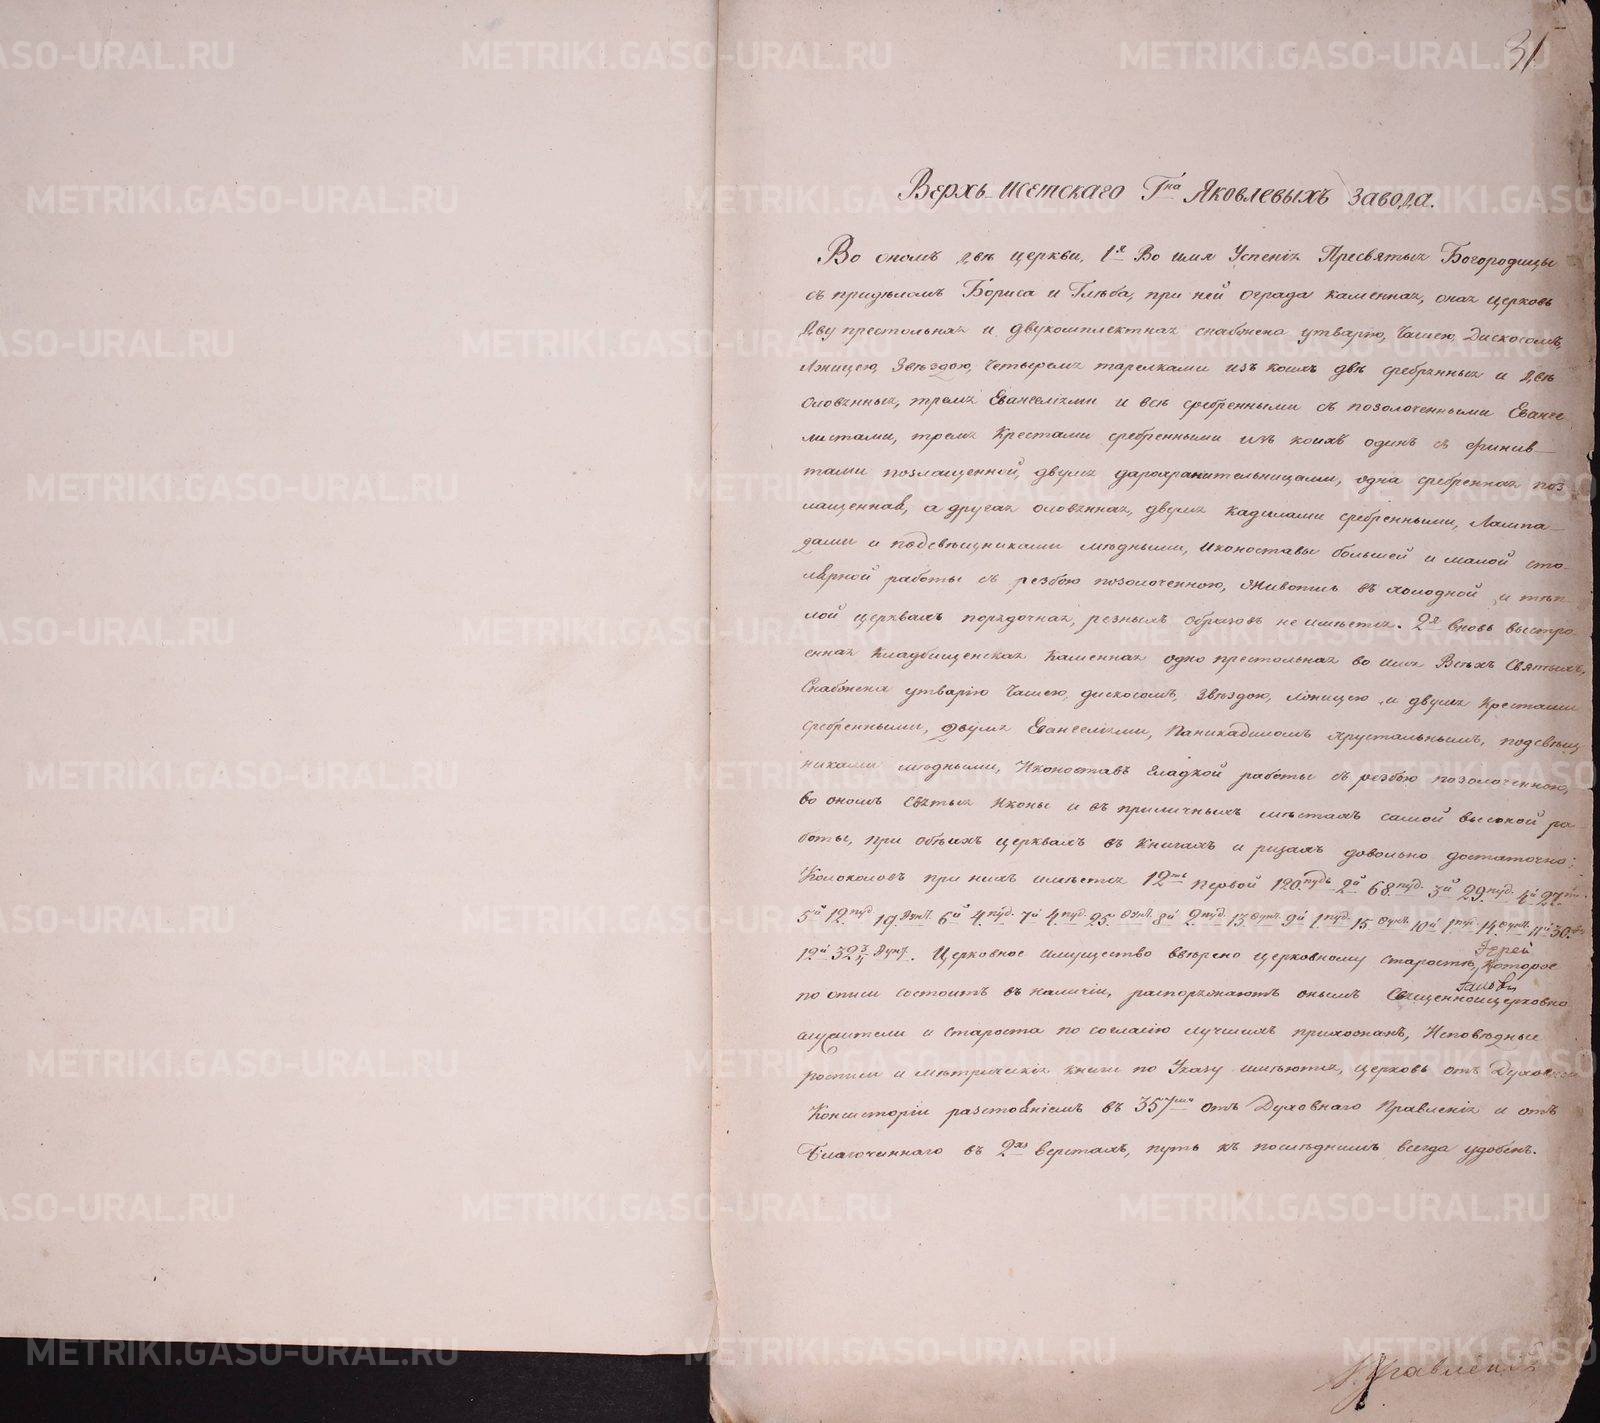 31
Верхъ-Исетскаго Гна Яковлевыхъ завода.
Во ономъ двѣ церкви, 1я Во имя Успенія Пресвятыя Богородицы
съ придѣломъ Бориса и Глѣба, при ней ограда каменная, оная церковь
двупрестольная и двукомплектная снабжена утварію, Чашею, Дискосомъ,
Лжицею, Звѣздою, Четыремя тарелками изъ коихъ двѣ сребряныя и двѣ
оловянныя, тремя Евангеліями и всѣ сребренными съ позолоченными Еванге
листами, тремя Крестами сребренными изъ коихъ одинъ съ Финив-
тами позлащенной, двумя дарохранительницами, одна сребренная поз
лащенная, а другая оловянная, двумя кадилами сребренными, Лампа-
дами и подсвѣщниками мѣдными, Иконостасы большей и малой сто-
лярной работы съ резбою позолоченною, Живопись въ холодной и теп-
лой церквахъ порядочная, резныхъ образовъ не имѣется. 2я вновь выстро-
енная Кладбищенская Каменная однопрестольная во имя Всѣхъ Святыхъ,
Снабжена утварію Чашею, дискосомъ, Звѣздою, лжицею и двумя Крестами
сребренными, двумя Евангеліями, Паникадиломъ хрустальнымъ, подсвѣщ
никами мѣдными, Иконостасъ гладкой работы съ резбою позолоченною,
во ономъ Святыя Иконы и въ приличныхъ мѣстахъ самой высокой ра-
боты, при обѣихъ церквахъ въ Книгахъ и ризахъ довольно достаточно;
Колоколовъ при нихъ имѣется 12ть первой 120 пудъ 2й 68 пуд. 3й 29 пуд. 4й 27 пу.
5й 12 пуд 19 Фунт. 6й 4 пуд. 7й 4 пуд. 25 Фунт. 8й 2 пуд. 13 Фунт. 9й 1 пуд. 15 Фунт. 10й 1 пуд 14 Фунт. 11й 30 ф
12й 32 3/4 Фунт. Церковное имущество ввѣрено церковному старостѣ, Которое
Іерей
по описи состоитъ въ наличіи, распоряжаютъ онымъ Священноицерковно
служители и староста по согласію лучшихъ прихожанъ, Исповѣдные
росписи и мѣтрическія книги по Указу имѣются, церковь отъ Духовной
Консисторіи разстояніемъ въ 35 отъ Духовнаго Правленія и отъ
Благочиннаго въ 2хъ верстахъ, путь къ послѣднимъ всегда удобенъ.
METRIKI.GASO-URAL.RU